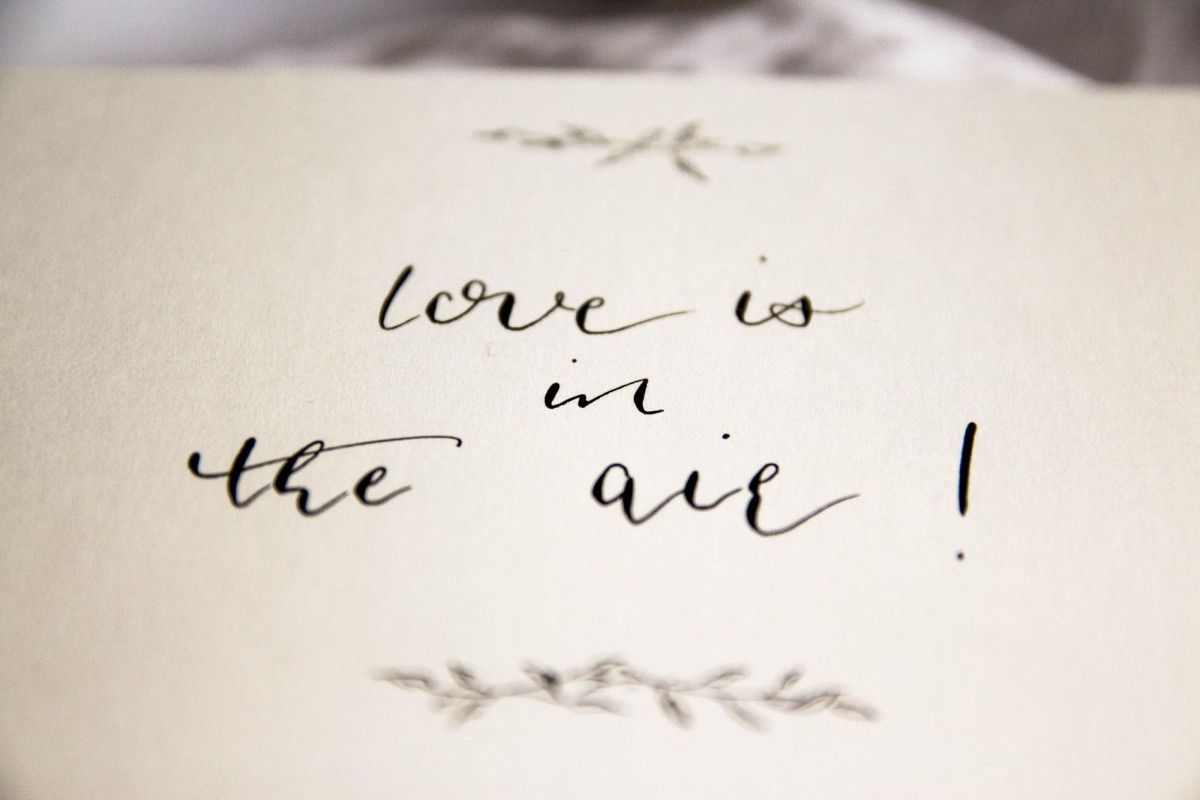 love is
in
the air!